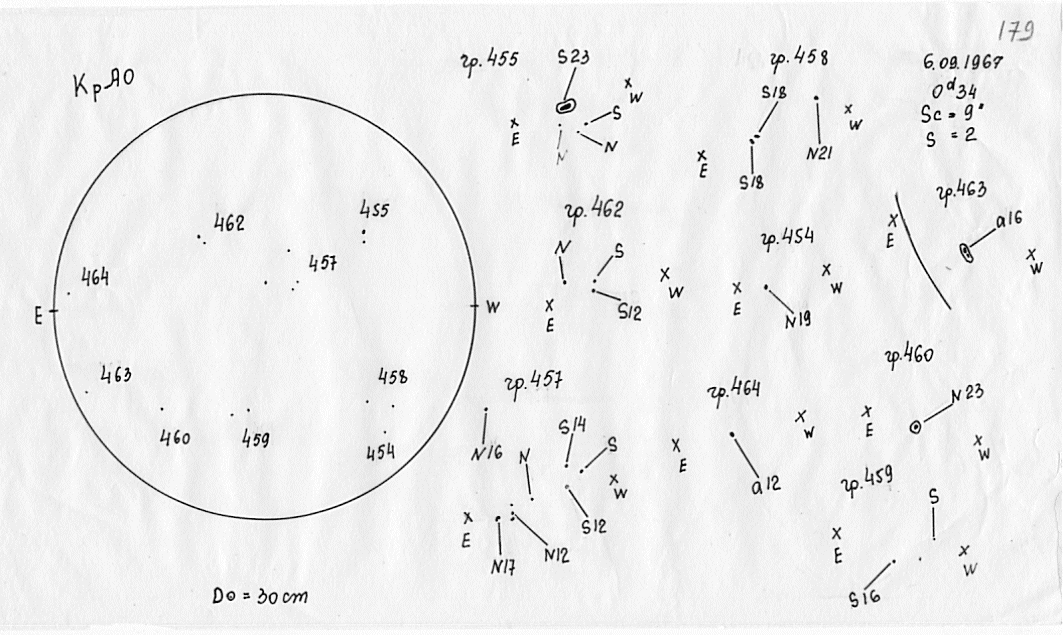 179
КрАО
6.09.1967
0ᵈ34
Sc = 9"
S = 2
462
455
457
464
E
W
463
458
460
459
454
D⊙ = 30 cm
гр.455
S23
x
W
S
x
E
N
N
гр.458
S18
x
W
x
E
S18
N21
гр.463
x
E
a16
x
W
гр.462
N
S
x
W
x
E
S12
гр.454
x
W
x
E
N19
гр.460
N23
x
E
x
W
гр.457
N16
S14
S
N
x
W
x
E
S12
N17
N12
гр.464
x
W
x
E
a12
гр.459
S
x
E
x
W
S16